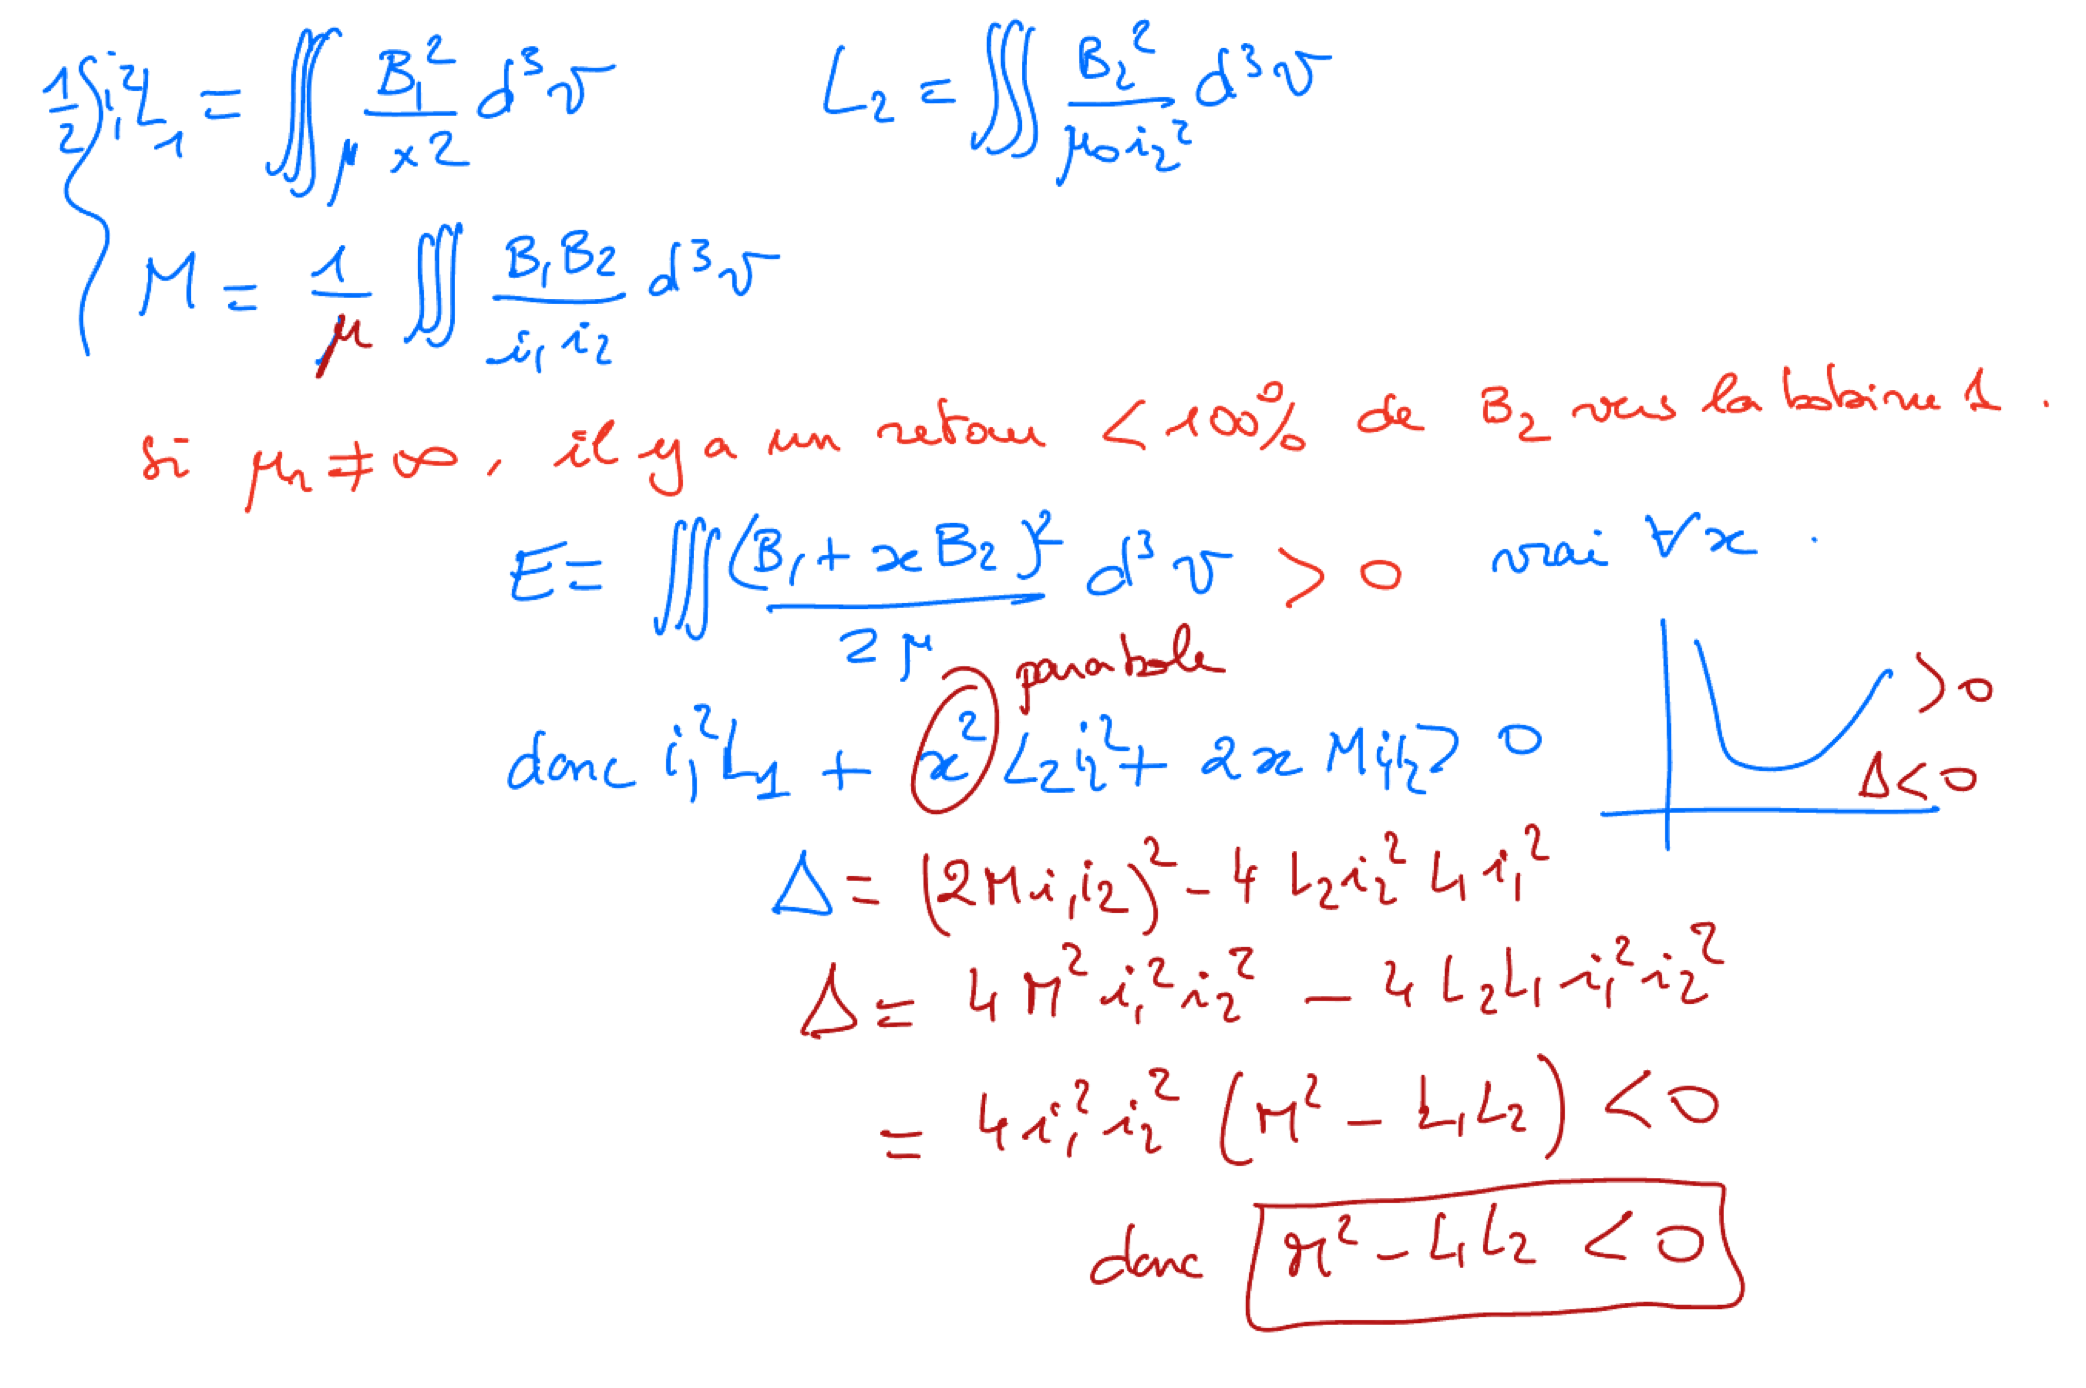 ½ i₁² L₁ = ∭ B₁² / (μ × 2) d³v    L₂ = ∭ B₂² / (μ₀ i₂²) d³v
M = 1/μ ∭ B₁B₂ / (i₁ i₂) d³v
si μr ≠ ∞, il y a un retour < 100% de B₂ vers la bobine 1.
E = ∭ (B₁ + x B₂)² / (2μ) d³v > 0 vrai ∀x.
parabole
donc i₁² L₁ + x² L₂ i₂² + 2x M i₁ i₂ > 0
> 0
Δ < 0
Δ = (2M i₁ i₂)² - 4 L₂ i₂² L₁ i₁²
Δ = 4 M² i₁² i₂² - 4 L₂ L₁ i₁² i₂²
= 4 i₁² i₂² (M² - L₁L₂) < 0
donc M² - L₁L₂ < 0